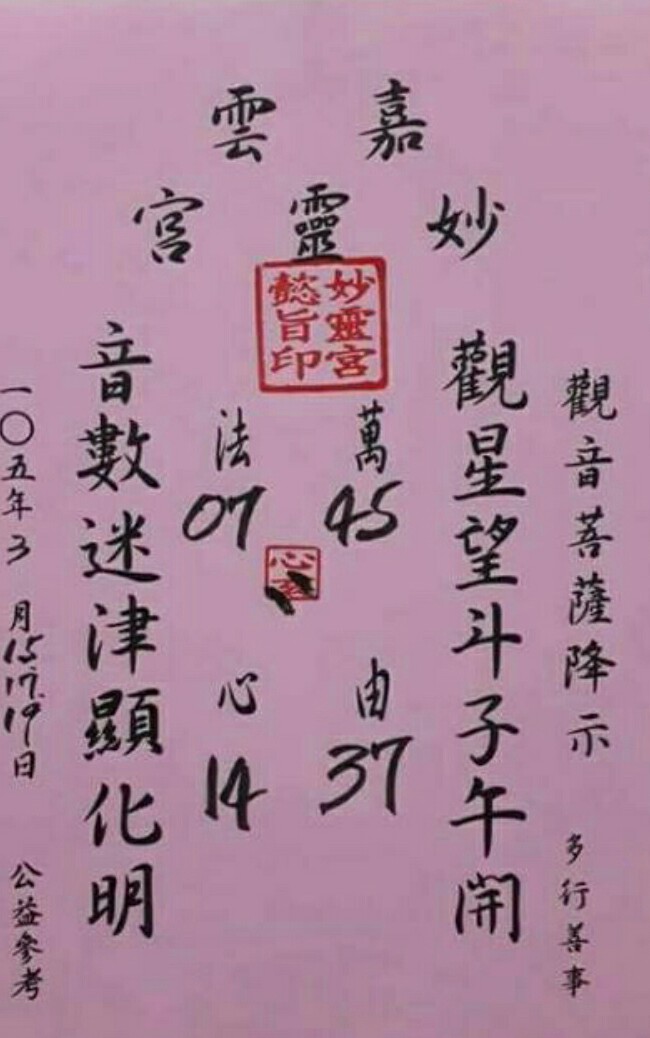 嘉雲
妙靈宮
妙靈宮
懿旨印
觀音菩薩降示 多行善事
觀星望斗子午開
萬 45 由 37
法 07 心 14
心
音數迷津顯化明
一〇五年3月15.17.19日 公益參考